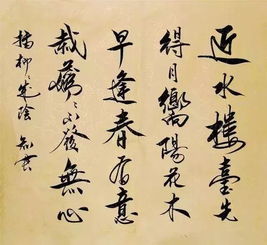 近水樓臺先
得月嚮陽花木
早逢春有意
栽蘤〻不發無心
插柳〻成陰